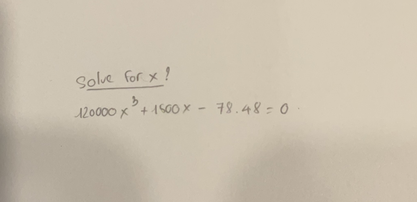 Solve for x?
120000x³ + 1500x - 78.48 = 0